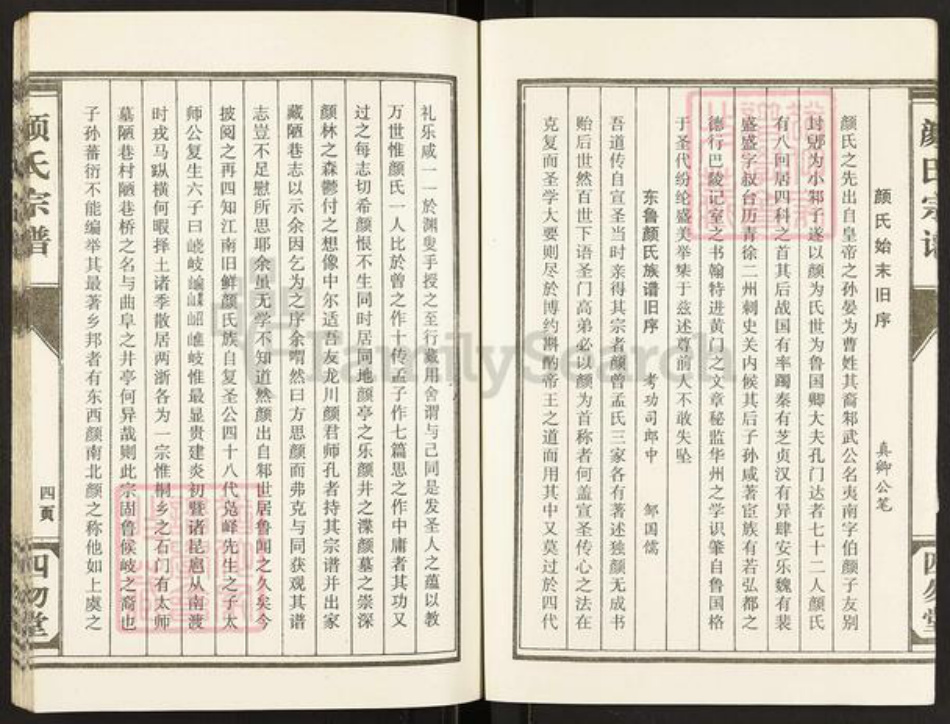 颜氏始末旧序
真卿公笔
颜氏之先出自皇帝之孙晏为曹姓其裔邾武公名夷甫字伯颜子友别
封郳为小邾子遂以颜为氏世为鲁国卿大夫孔门达者七十二人颜氏
有八回居四科之首其后战国有率躅秦有芝贞汉有异肆安乐魏有裴
盛盛字叔台历青徐二州刺史关内候其后子孙咸著宦族有若弘都之
德行巴陵记室之书翰特进黄门之文章秘监华州之学识肇自鲁国格
于圣代纷纶盛美举集于兹述尊前人不敢失坠
东鲁颜氏族谱旧序
考功司郎中
邹国儒
吾道传自宣圣当时亲得其宗者颜曾孟氏三家各有著述独颜无成书
贻后世然百世下语圣门高弟必以颜为首称者何盖宣圣传心之法在
克复而圣学大要则尽於博约斟酌帝王之道而用其中又莫过於四代
礼乐咸一一於渊叟手授之至行藏用舍谓与己同是发圣人之蕴以教
万世惟颜氏一人比於曾之作十传孟子作七篇思之作中庸者其功又
过之每志切希颜恨不生同时居同地颜亭之乐颜井之渫颜墓之崇深
颜林之森鬱付之想像中尔适吾友龙川颜君师孔者持其宗谱并出家
藏陋巷志以示余因乞为之序余喟然曰方思颜而弗克与同获观其谱
志岂不足慰所思耶余虽无学不知道然颜出自邾世居鲁闻之久矣今
披阅之再四知江南旧鲜颜氏族自复圣公四十八代凫峄先生之子太
师公复生六子曰峣岐 岐惟最显贵建炎初暨诸昆扈从南渡
时戎马蹂横何暇择土诸季散居两浙各为一宗惟桐乡之石门有太师
墓陋巷村陋巷桥之名与曲阜之井亭何异哉则此宗固鲁候岐之裔也
子孙蕃衍不能编举其最著乡邦者有东西颜南北颜之称他如上虞之
颜氏宗谱
四页
四勿堂
颜氏宗谱
四勿堂
FamilySearch